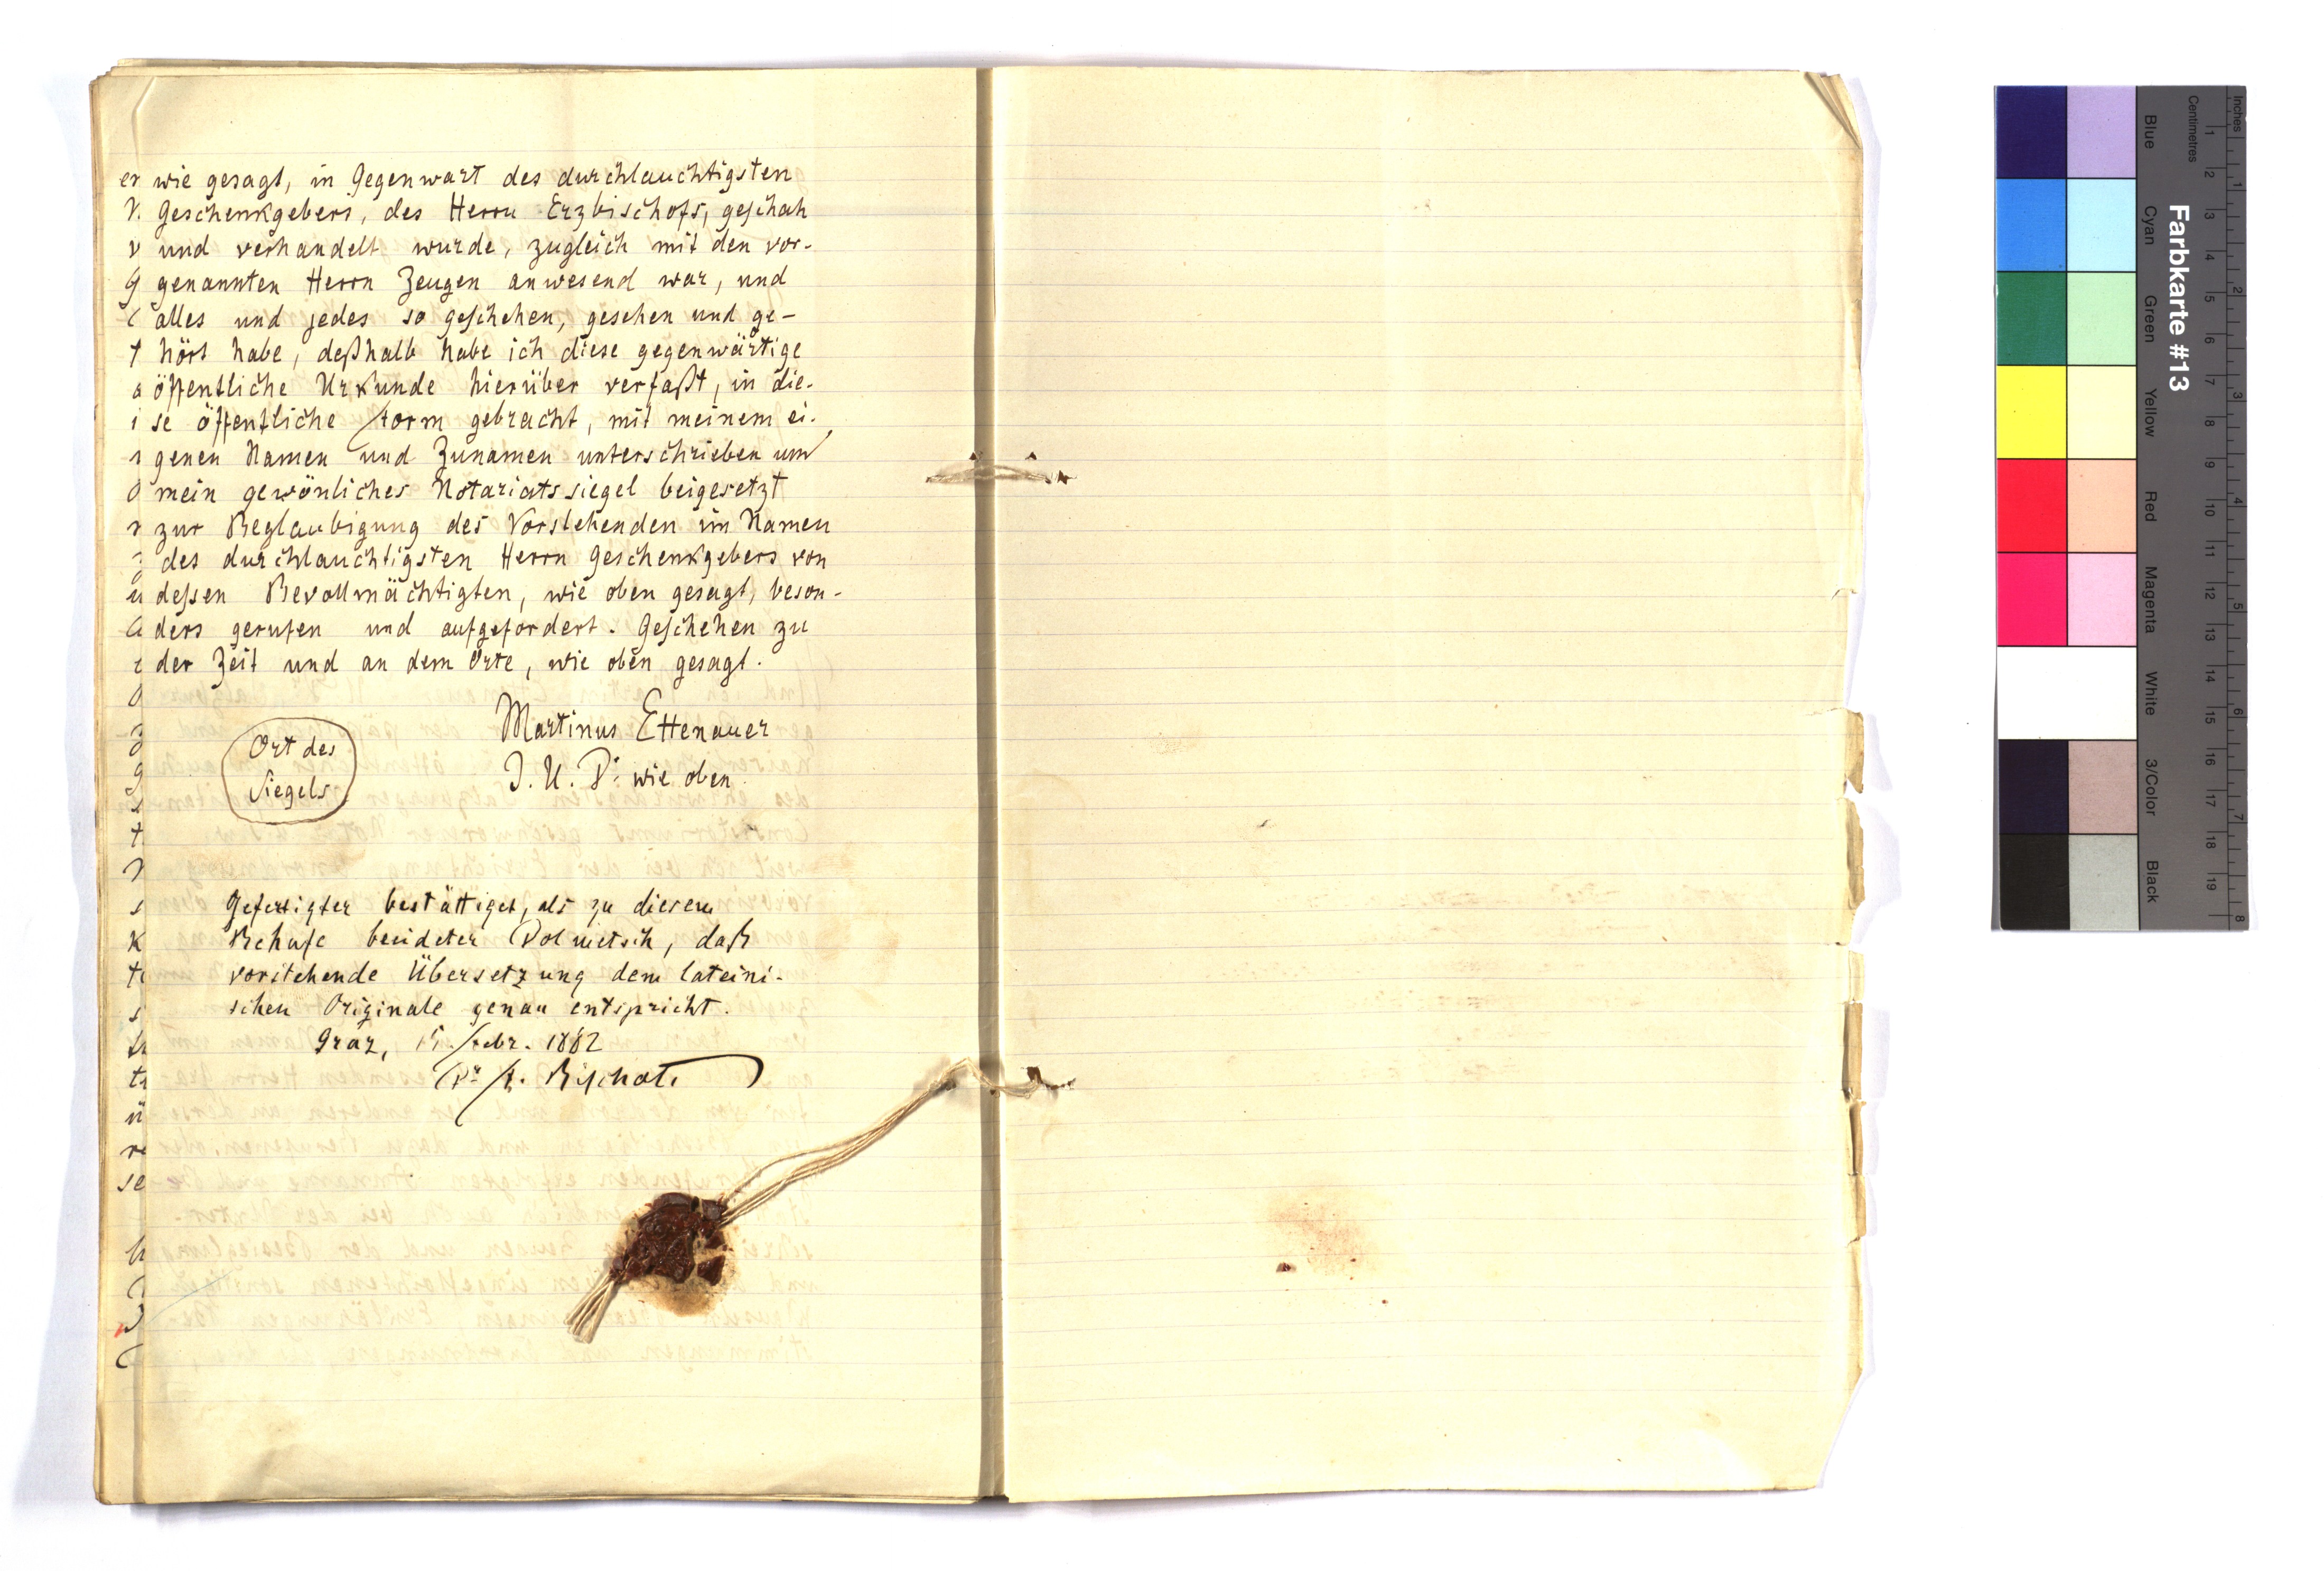 wie gesagt, in Gegenwart des durchlauchtigsten
Geschenkgebers, des Herrn Erzbischofs, geschah
und verhandelt wurde, zugleich mit den vor-
genannten Herrn Zeugen anwesend war, und
alles und jedes so geschehen, gesehen und ge-
hört habe, deßhalb habe ich diese gegenwärtige
öffentliche Urkunde hierüber verfaßt, in die-
se öffentliche Form gebracht, mit meinem ei-
genen Namen und Zunamen unterschrieben und
mein gewönliches Notariatssiegel beigesetzt
zur Beglaubigung des Vorstehenden im Namen
des durchlauchtigsten Herrn Geschenkgebers von
dessen Bevollmächtigten, wie oben gesagt, beson-
ders gerufen und aufgefordert. Geschehen zu
der Zeit und an dem Orte, wie oben gesagt.
Martinus Ettenauer
J. U. D: wie oben
Ort des
Siegels
Gefertigter bestättiget, als zu diesem
Behufe beeideter Dolmetsch, daß
vorstehende Übersetzung dem lateini-
schen Originale genau entspricht.
Graz, Febr. 1882
Dr F. Bischoff
Farbkarte #13
Blue
Cyan
Green
Yellow
Red
Magenta
White
3/Color
Black
Centimetres
1 2 3 4 5 6 7 8 9 10 11 12 13 14 15 16 17 18 19
Inches
1 2 3 4 5 6 7 8